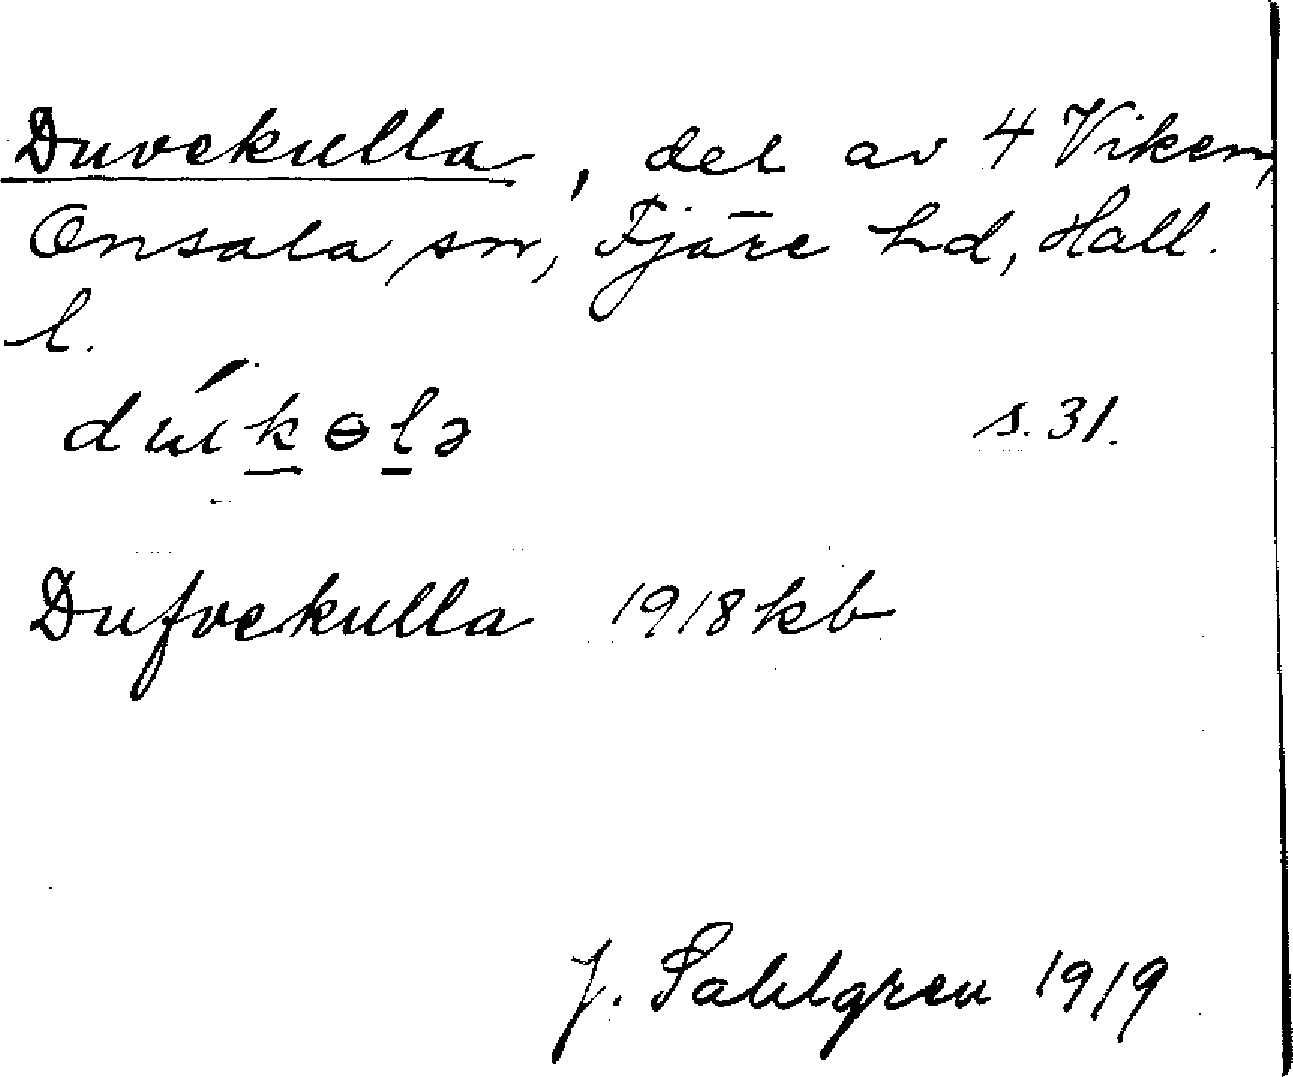 Duvekulla, del av 4 Viken,
Onsala sn, Fjäre hd, Hall.
l.
s. 31.
Dufvekulla 1918 kb
J. Sahlgren 1919